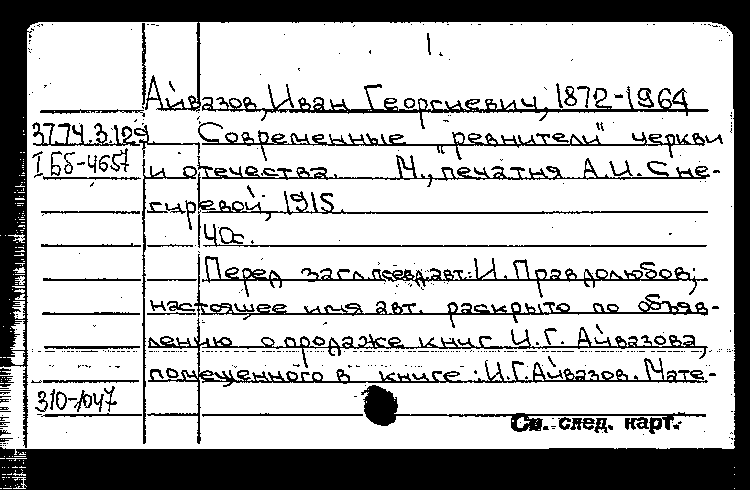 1.
Айвазов, Иван Георгиевич, 1872-1964
37.74.3.129. Современные "ревнители" церкви
I Бб-4657 и отечества. М., печатня А.И. Сне-
гиревой, 1915.
40с.
Перед загл. псевд. авт.: И. Правдолюбов;
настоящее имя авт. раскрыто по объяв-
лению о продаже книг И.Г. Айвазова,
помещенного в книге: И.Г. Айвазов. Мате-
310-1047
См. след. карт.